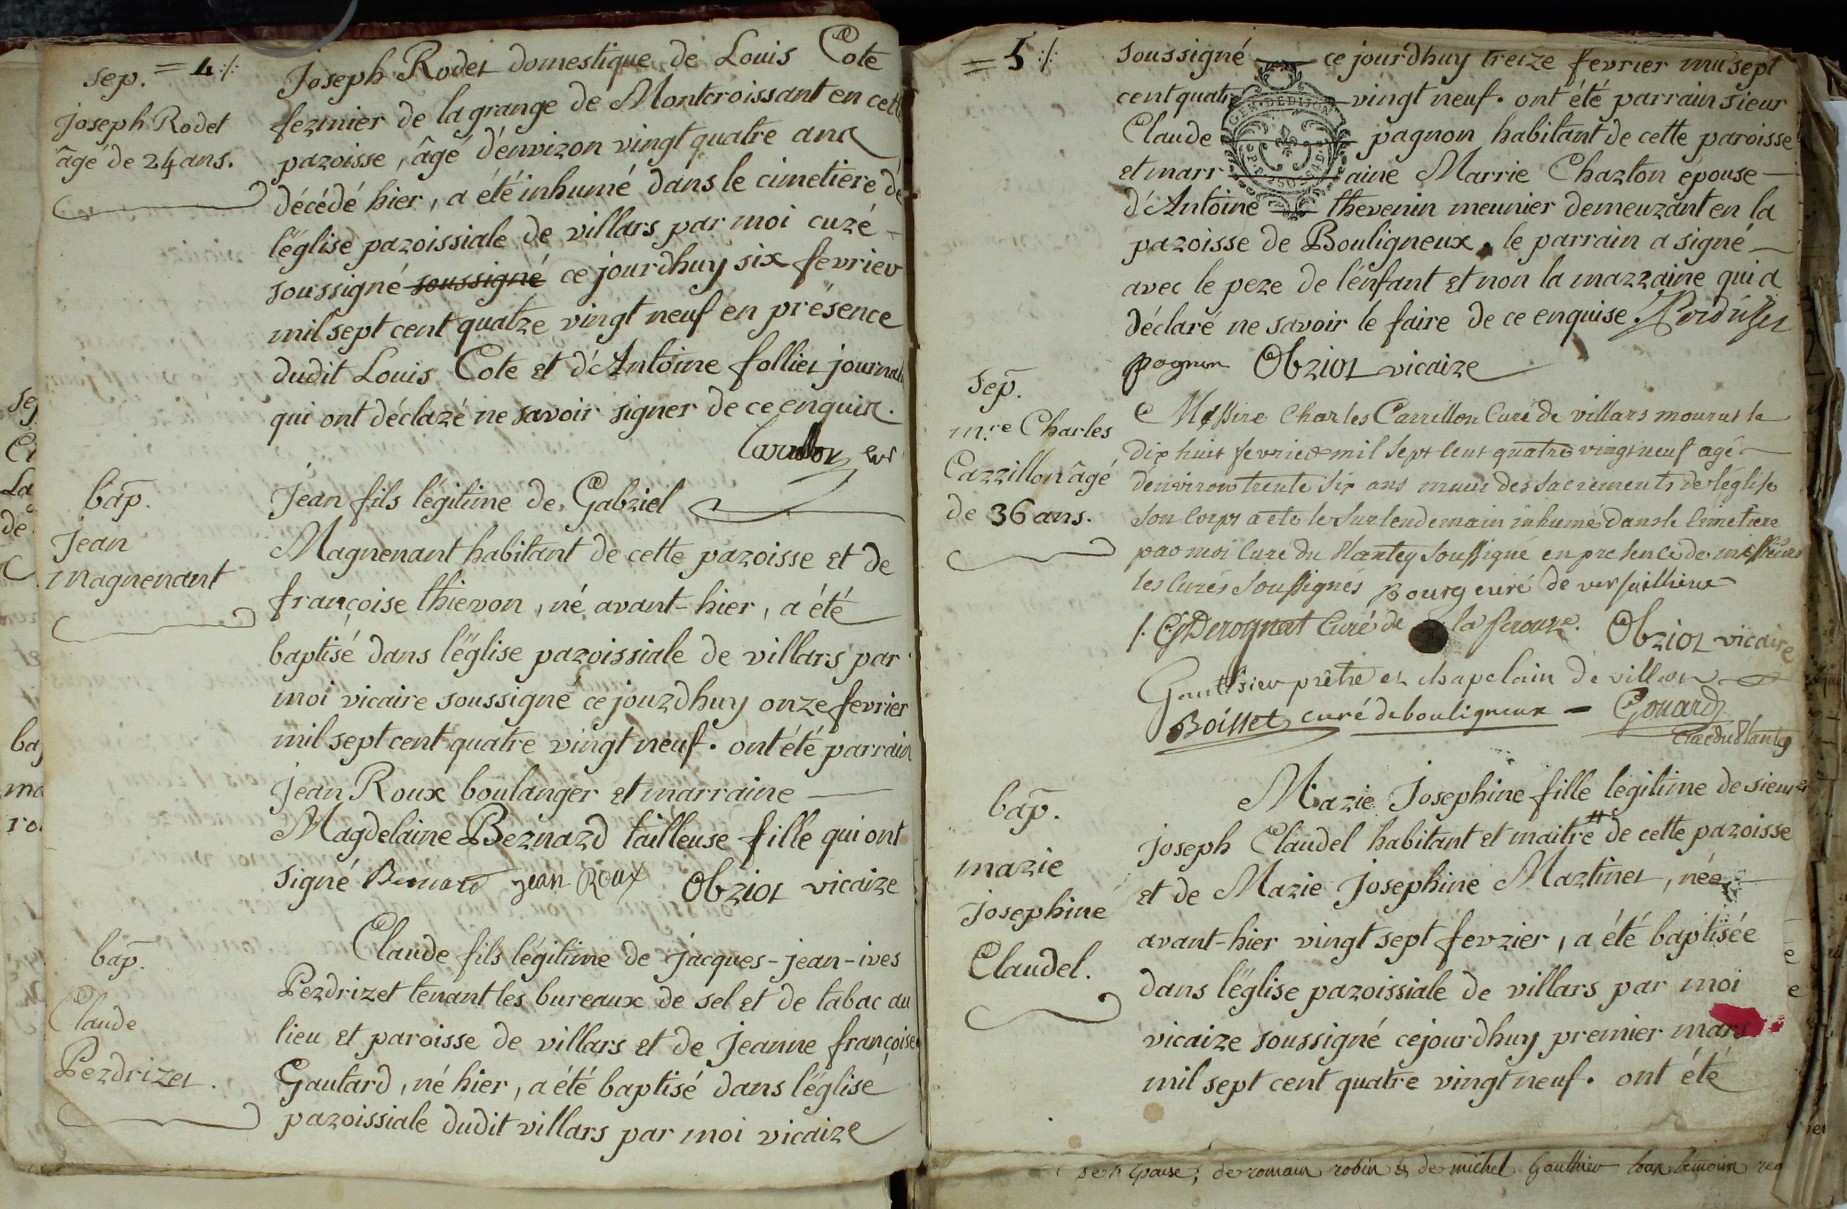 sep. = 4 ·/.
Joseph Rodet
âgé de 24 ans.
Joseph Rodet domestique de Louis Cote
fermier de la grange de Montcroissant en cett
paroisse, âgé d'environ vingt quatre ans
décédé hier, a été inhumé dans le cimetiere de
l'église paroissiale de villars par moi curé
soussigné soussigné ce jourdhuy six fevrier
mil sept cent quatre vingt neuf en présence
dudit Louis Cote et d'Antoine folliet journal
qui ont déclaré ne savoir signer de ce enquis.
bap.
jean
magnenant
Jean fils légitime de Gabriel
Magnenant habitant de cette paroisse et de
françoise thievon, né avant-hier, a été
baptisé dans l'église paroissiale de villars par
moi vicaire soussigné ce jourdhuy onze fevrier
mil sept cent quatre vingt neuf. ont été parrain
jean Roux boulanger et marraine
Magdelaine Bernard tailleuse fille qui ont
signé Bernard jean Roux Obriot vicaire
bap.
Claude
Perdrizet.
Claude fils légitime de jacques-jean-ives
Perdrizet tenant les bureaux de sel et de tabac au
lieu et paroisse de villars et de Jeanne françoise
Gautard, né hier, a été baptisé dans l'église
paroissiale dudit villars par moi vicaire
= 5 ·/.
soussigné ce jourdhuy treize fevrier mil sept
cent quatre vingt neuf. ont été parrain sieur
Claude pagnon habitant de cette paroisse
et marraine Marrie Charton épouse
d'Antoine thevenin meunier demeurant en la
paroisse de Bouligneux. le parrain a signé
avec le pere de l'enfant et non la marraine qui a
déclaré ne savoir le faire de ce enquise. Perdrizet
pagnon Obriot vicaire
sep.
m.re Charles
Carrillon âgé
de 36 ans.
Messire Charles Carrillon Curé de villars mourut le
dix huit fevrier mil sept cent quatre vingt neuf agé
denviron trente six ans muni des sacrements de léglise
son corps a été le surlendemain inhumé dans le Cimetiere
par moi Curé du Plantey soussigné en presence de messieurs
les Curés soussignés Bourg curé de versailleux
Derognat Curé de la Perouze. Obriot vicaire
Gauthier prêtre et chapelain de villars
Boisset curé de bouligneux - Gouard
Curé du Plantey
bap.
marie
josephine
Claudel.
Marie Josephine fille légitime de sieur
joseph Claudel habitant et maitre # de cette paroisse
et de Marie Josephine Martinet, née
avant-hier vingt sept fevrier, a été baptisée
dans l'église paroissiale de villars par moi
vicaire soussigné cejourdhuy premier mars
mil sept cent quatre vingt neuf. ont été
de romain robin & de michel Gauthier